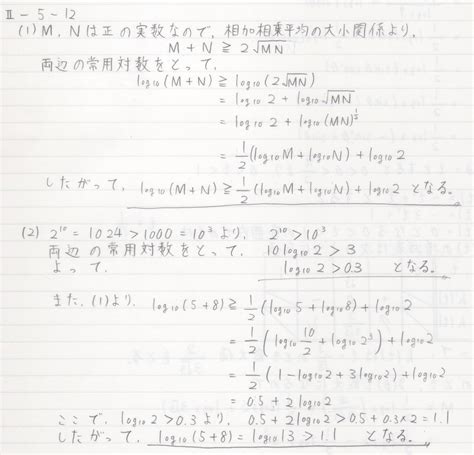 Ⅱ-5-12
(1) M, Nは正の実数なので、相加相乗平均の大小関係より、
M+N ≧ 2√MN
両辺の常用対数をとって、
log₁₀(M+N) ≧ log₁₀(2√MN)
= log₁₀2 + log₁₀√MN
= log₁₀2 + log₁₀(MN)^(1/2)
= 1/2(log₁₀M+log₁₀N)+log₁₀2
したがって、log₁₀(M+N) ≧ 1/2(log₁₀M+log₁₀N)+log₁₀2 となる。
(2) 2¹⁰ = 1024 > 1000 = 10³ より、 2¹⁰ > 10³
両辺の常用対数をとって、 10log₁₀2 > 3
よって、 log₁₀2 > 0.3 となる。
また、(1)より、log₁₀(5+8) ≧ 1/2(log₁₀5+log₁₀8)+log₁₀2
= 1/2(log₁₀10/2+log₁₀2³)+log₁₀2
= 1/2(1-log₁₀2+3log₁₀2)+log₁₀2
= 0.5+2log₁₀2
ここで、log₁₀2>0.3より、0.5+2log₁₀2>0.5+0.3×2=1.1
したがって、log₁₀(5+8)=log₁₀13>1.1 となる。